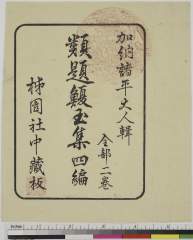 加納諸平大人輯
類題鰒玉集四編
全部二巻
柿園社中蔵板